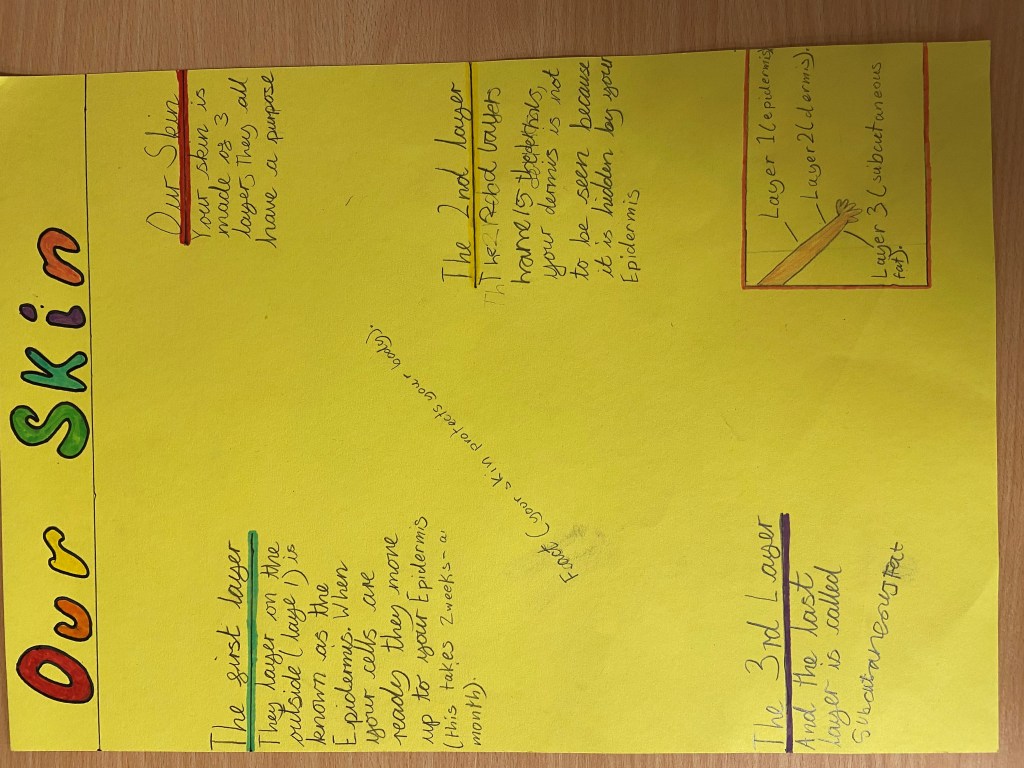 Our Skin
Our Skin
Your skin is
made is 3
layers, They all
have a purpose
The first layer
They layer on the
outside (laye 1) is
known as the
Epidermis. When
your cells are
ready they move
up to your Epidermis
(this takes 2 weeks - a
month).
Fact (your skin protects your body).
The 2nd layer
layers
name is
your dermis is not
to be seen because
it is hidden by your
Epidermis
The 3rd Layer
And the last
layer is called
Subcutaneous Fat
Layer 1 (epidermis)
Layer 2 (dermis).
Layer 3 (subcutaneous
Fat).